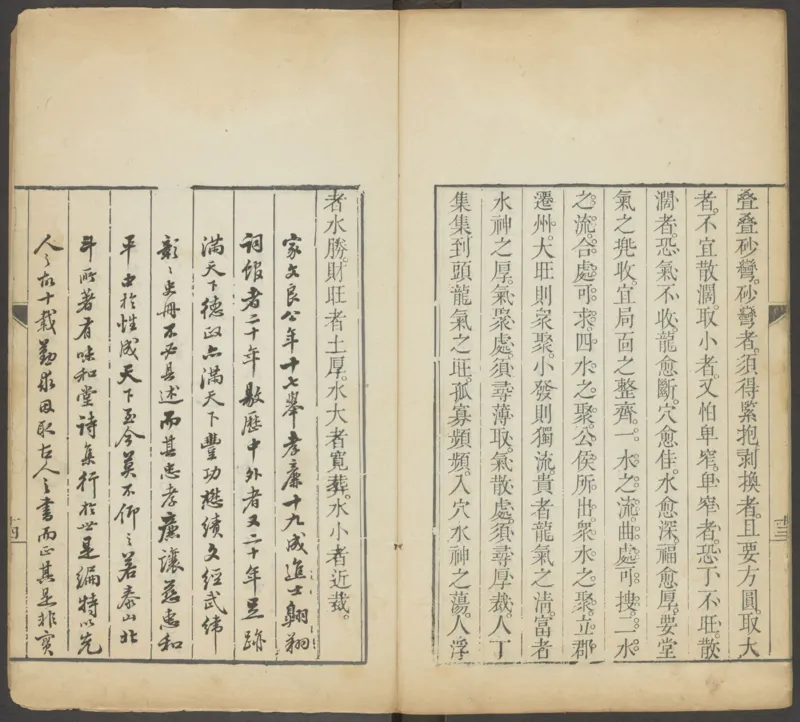 叠叠砂彎。砂彎者。須得緊抱剥換者。且要方圓。取大
者。不宜散濶。取小者。又怕卑窄。卑窄者。恐丁不旺。散
濶者。恐氣不收。龍愈斷。穴愈佳。水愈深。福愈厚。要堂
氣之兠收。宜局面之整齊。一水之流。曲處可搜。二水
之流。合處可求。四水之聚。公侯所出。衆水之聚。立郡
遷州。大旺則衆聚。小發則獨流。貴者龍氣之清。富者
水神之厚。氣聚處。須尋薄取。氣散處。須尋厚裁。人丁
集集。到頭龍氣之旺。孤寡頻頻。入穴水神之蕩。人浮
者水勝。財旺者土厚。水大者寬葬。水小者近裁。
家文良公年十七舉孝廉十九成進士翱翔
詞館者二十年敭歷中外者又二十年足跡
滿天下德政亦滿天下豐功懋績文經武緯
彰彰史冊不必具述而其忠孝廉讓慈惠和
平由於性成天下至今莫不仰之若泰山北
斗所著有味和堂詩集行於世是編特以先
人之故十載勤求因取古人之書而正其是非實
十三
十四